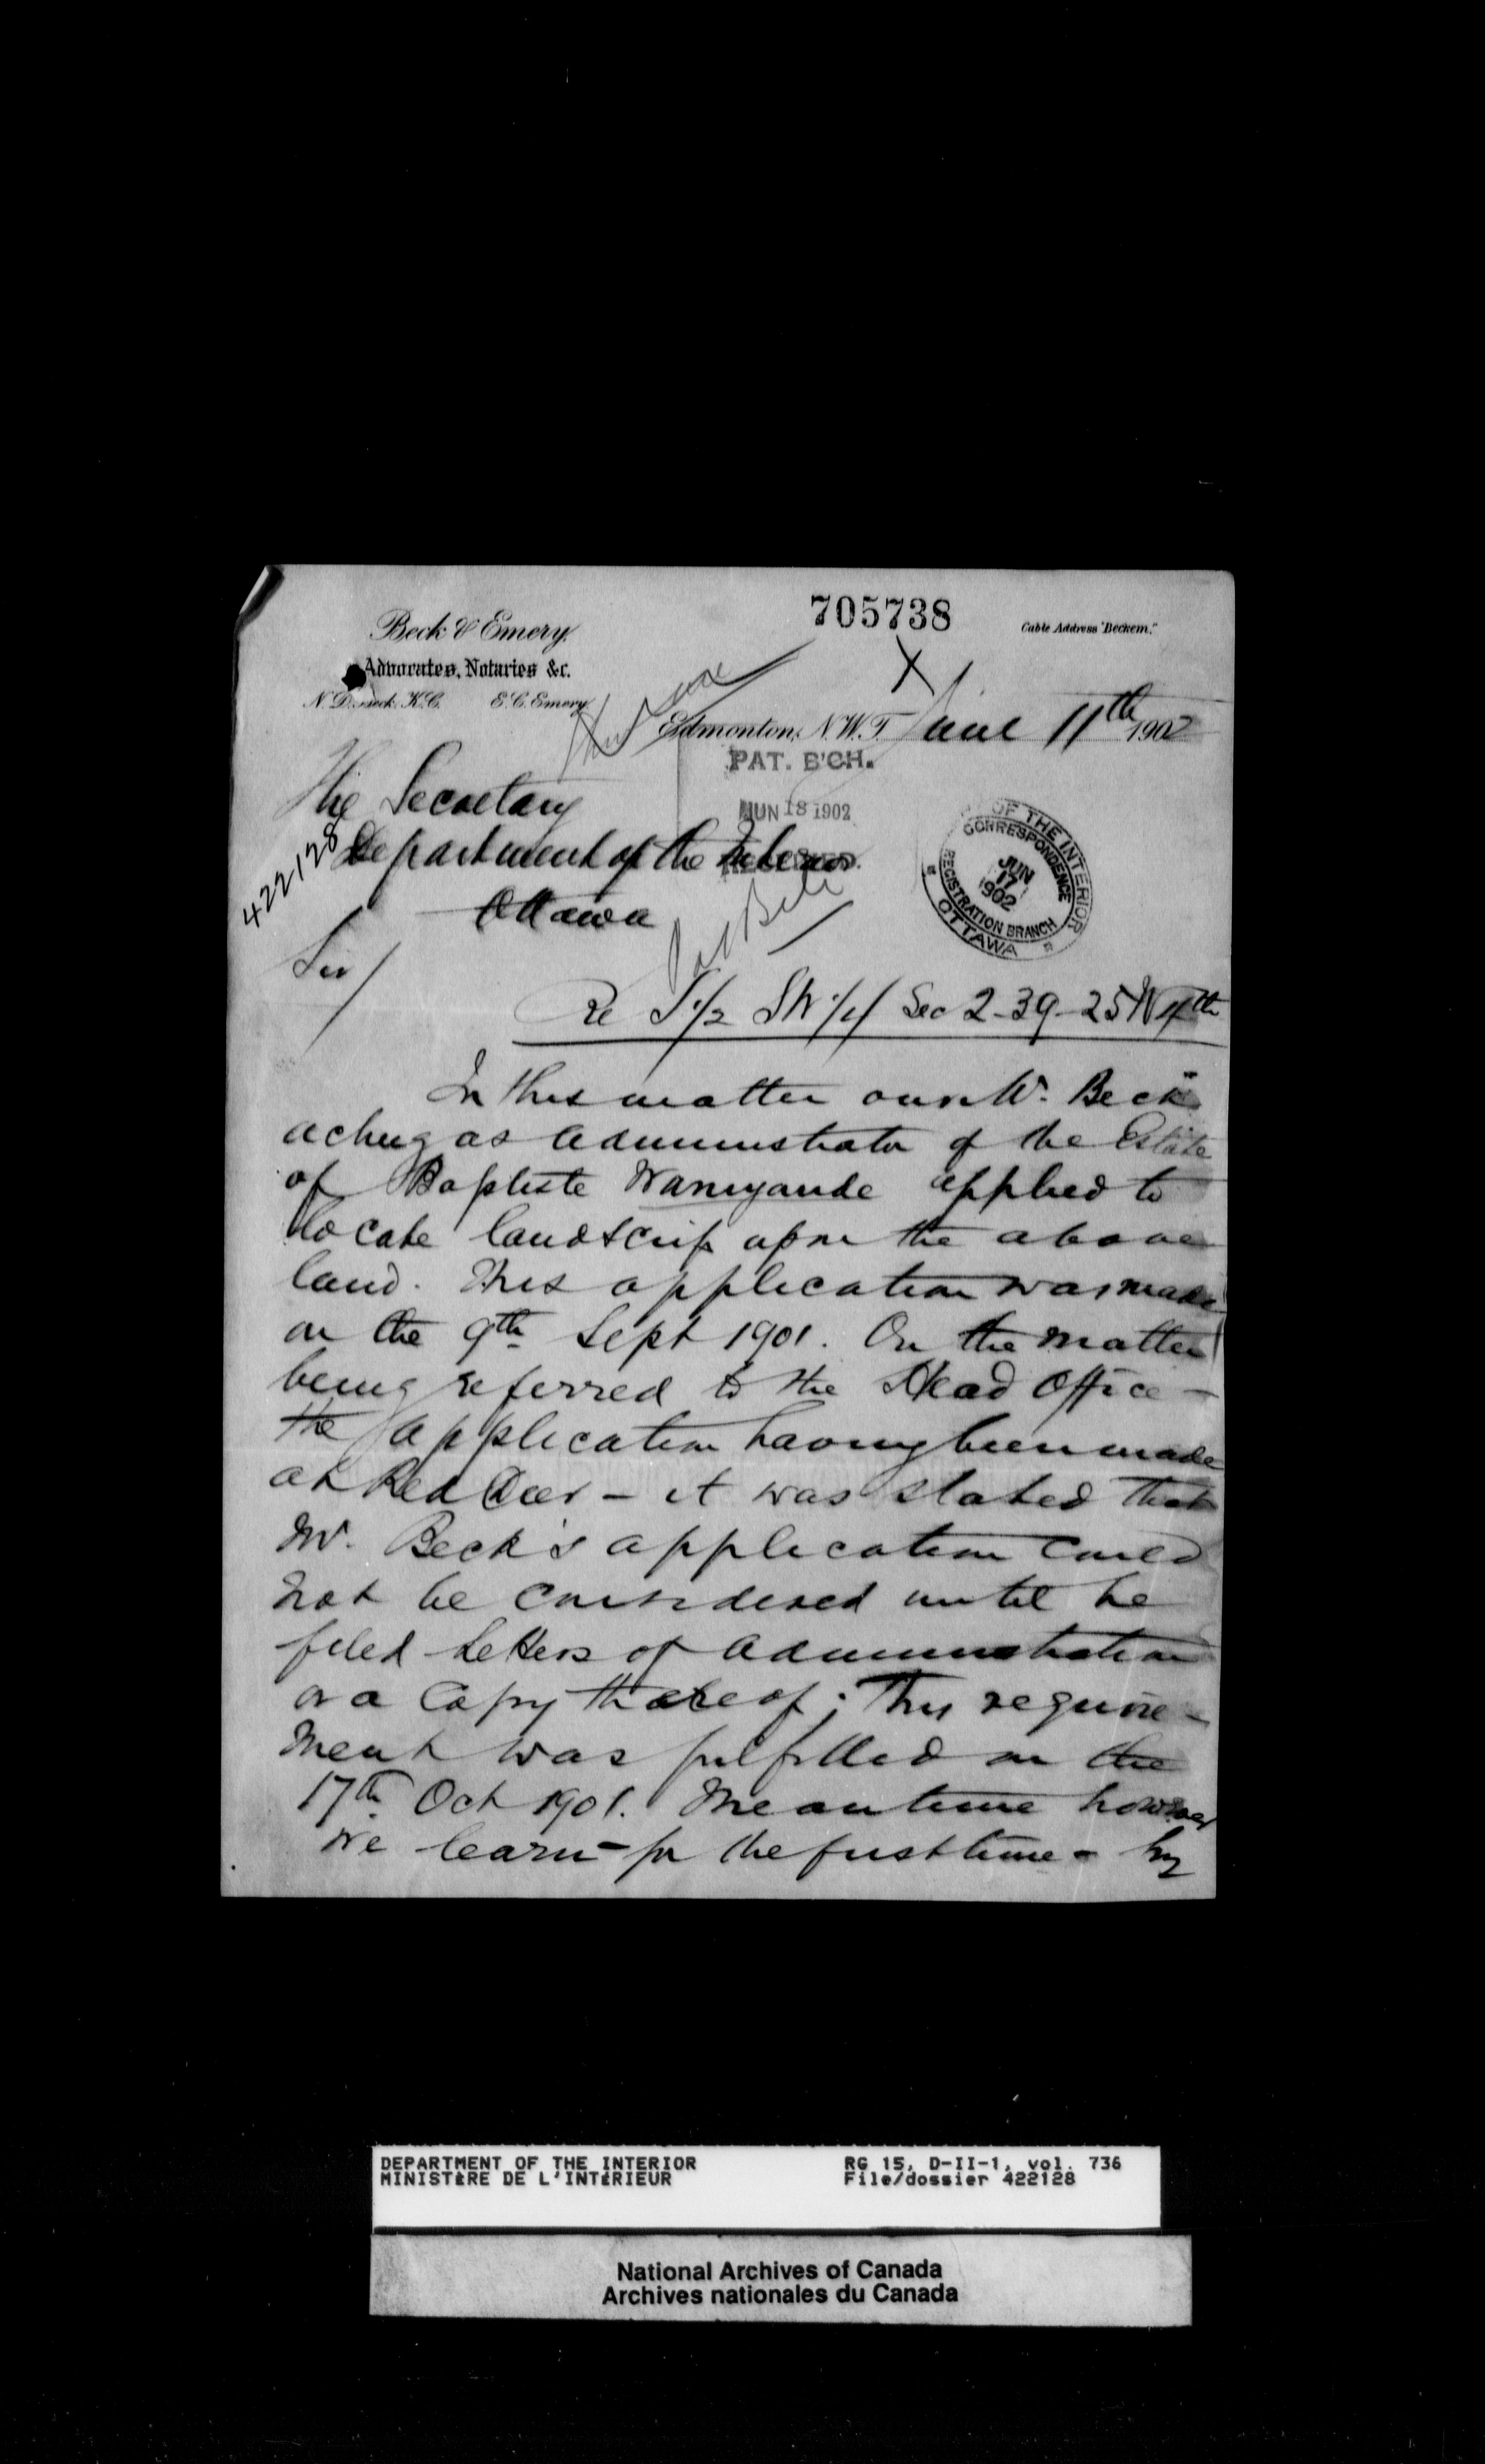 705738
Beck & Emery.
Cable Address "Beckem."
Advocates, Notaries &c.
N. D. Beck. K.C. E. C. Emery
Edmonton, N.W.T. June 11th 1902
PAT. B'CH.
JUN 18 1902
The Secretary
Department of the Interior
422128
Ottawa
OF THE INTERIOR
CORRESPONDENCE
JUN
17
1902
REGISTRATION BRANCH
OTTAWA
Sir/
Re S 1/2 SW 1/4 Sec 2-39-25 W 4th
In this matter our Mr. Beck
acting as administrator of the Estate
of Baptiste Wanyande applied to
locate landscrip upon the above
land. This application was made
on the 9th Sept 1901. On the matter
being referred to the Head Office –
the application having been made
at Red Deer – it was stated that
Mr. Beck's application could
not be considered until he
filed Letters of Administration
or a Copy thereof; This require-
ment was fulfilled on the
17th Oct 1901. Meantime however
we learn – for the first time – by
DEPARTMENT OF THE INTERIOR RG 15, D-II-1, vol. 736
MINISTÈRE DE L'INTÉRIEUR File/dossier 422128
National Archives of Canada
Archives nationales du Canada